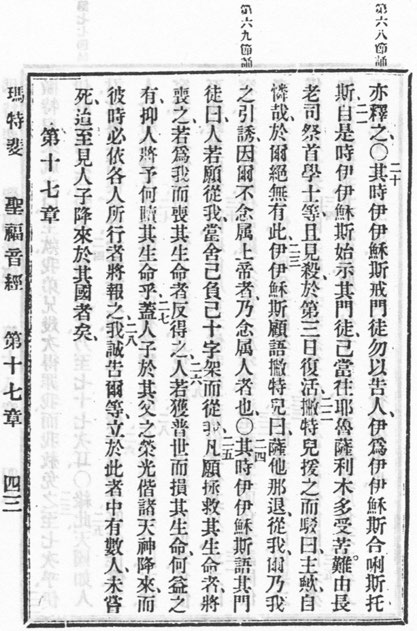 第六八節誦
第六九節誦
亦釋之、○其時伊伊穌斯戒門徒勿以告人、伊爲伊伊穌斯合唎斯托
二十
斯、自是時伊伊穌斯始示其門徒、己當往耶魯薩利木、多受苦難、由長
二一
老司祭首學士等、且見殺、於第三日復活、撒特兒援之而駁曰、主歟自
二二
憐哉、於爾絕無有此、伊伊穌斯顧語撒特兒曰、薩他那退、從我、爾乃我
二三
之引誘、因爾不念属上帝者、乃念属人者也、○其時伊伊穌斯語其門
二四
徒曰、人若願從我、當舍己負己十字架而從我、凡願拯救其生命者、將
二五
喪之、若爲我而喪其生命者、反得之、人若獲普世而損其生命、何益之
二六
有、抑人將予何贖其生命乎、蓋人子於其父之榮光偕諸天神降來、而
二七
彼時必依各人所行者將報之、我誠告爾等、立於此者中有數人未嘗
二八
死、迨至見人子降來於其國者矣、
第十七章
瑪特斐 聖福音經 第十七章 四三